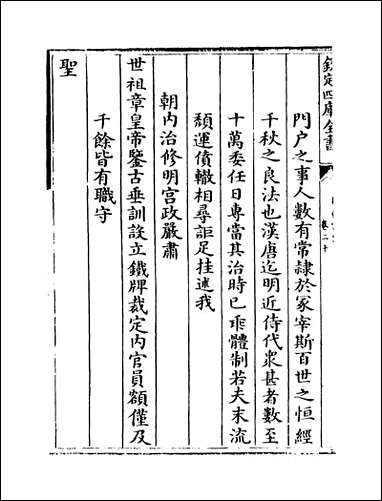 欽定四庫全書
卷二十
門户之事人數有常隸於冢宰斯百世之恒經
千秋之良法也漢唐迄明近侍代衆甚者數至
十萬委任日專當其治時已乖體制若夫末流
頽運債轍相尋詎足挂述我
朝内治修明宫政嚴肅
世祖章皇帝鑒古垂訓設立鐵牌裁定内官員額僅及
千餘皆有職守
聖